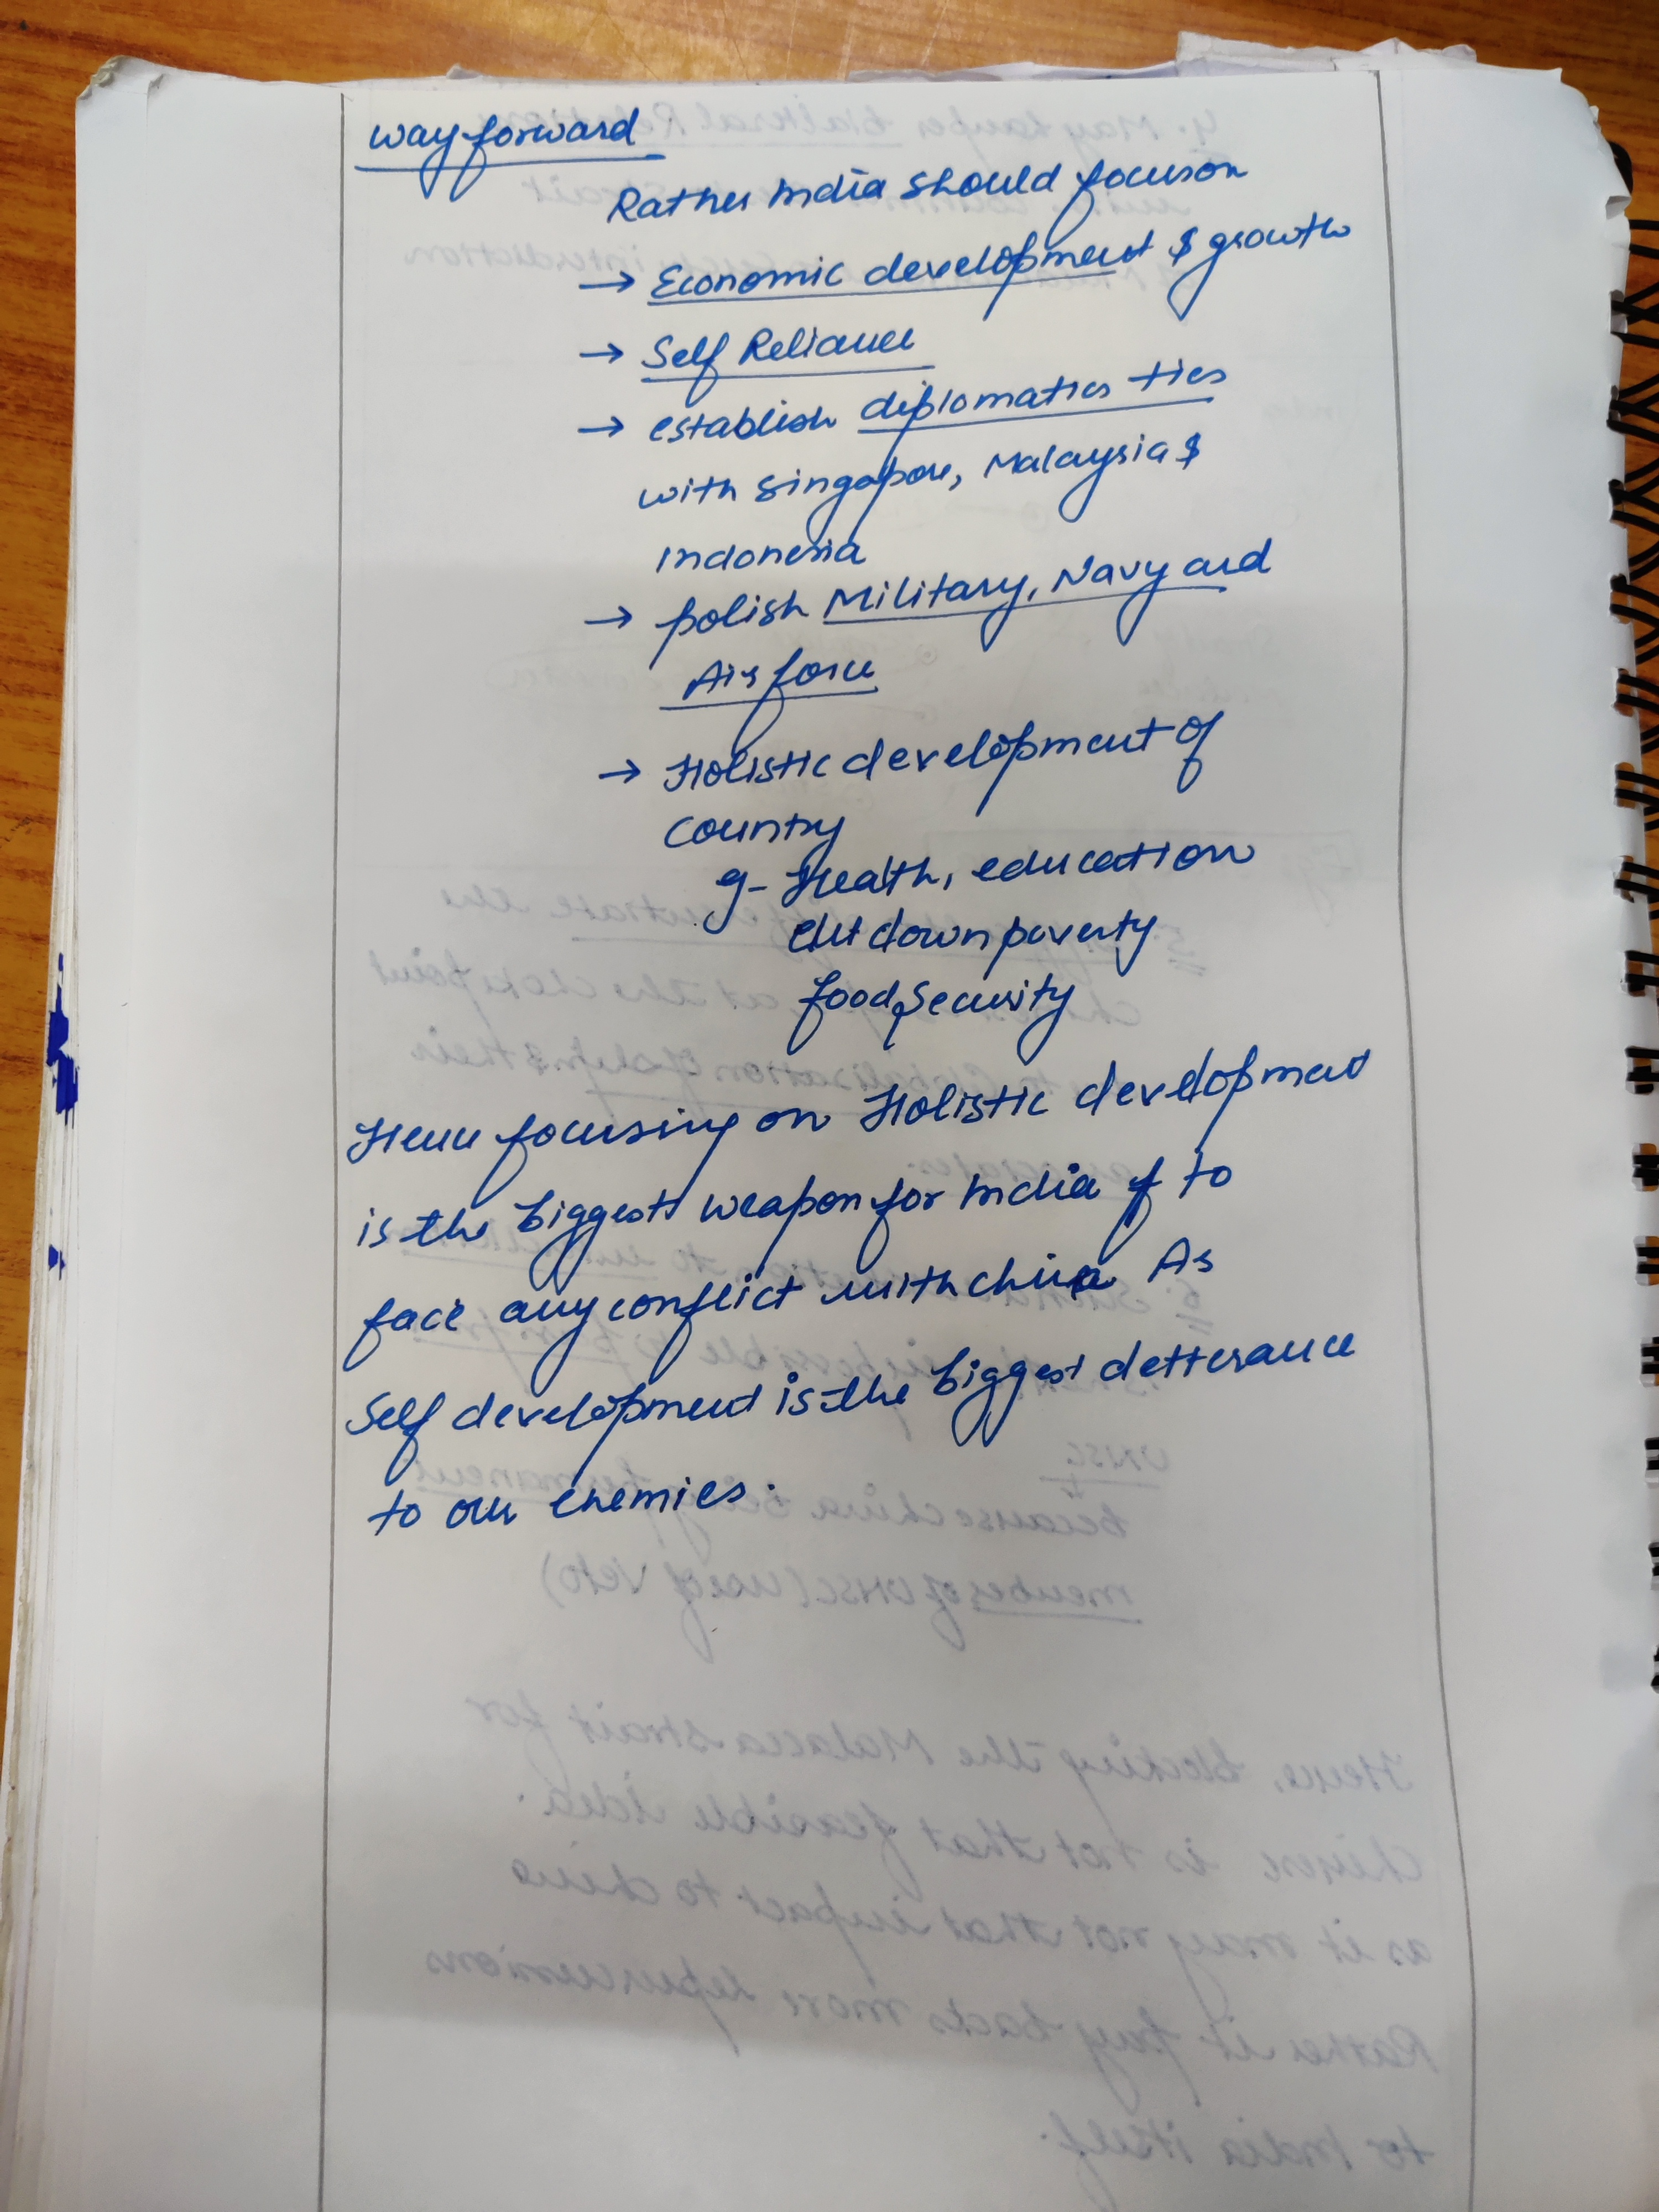 way forward
Rather India should focus on
→ Economic development & growth
→ Self Reliance
→ establish diplomatics ties
with Singapore, Malaysia &
Indonesia
→ polish Military, Navy and
Air force
→ Holistic development of
country
g- Health, education
cut down poverty
food security
Hence focusing on Holistic development
is the biggest weapon for India to
face any conflict with china As
Self development is the biggest detterance
to our enemies.